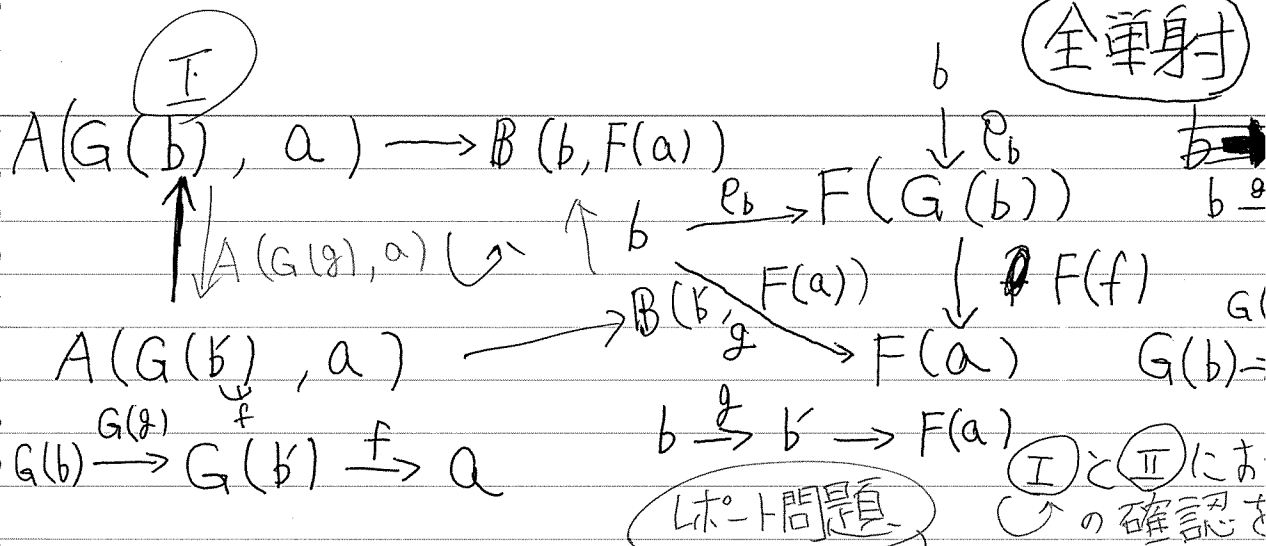 I
全単射
A(G(b), a) → B(b, F(a))
b
↓ e_b
b → e_b F(G(b))
b
A(G(g), a)
↓ F(f)
B(b', F(a))
g
A(G(b'), a) → F(a)
G(b)
f
G(b) →G(g) G(b') →f a
b →g b' → F(a)
レポート問題
IとIIにお
の確認を